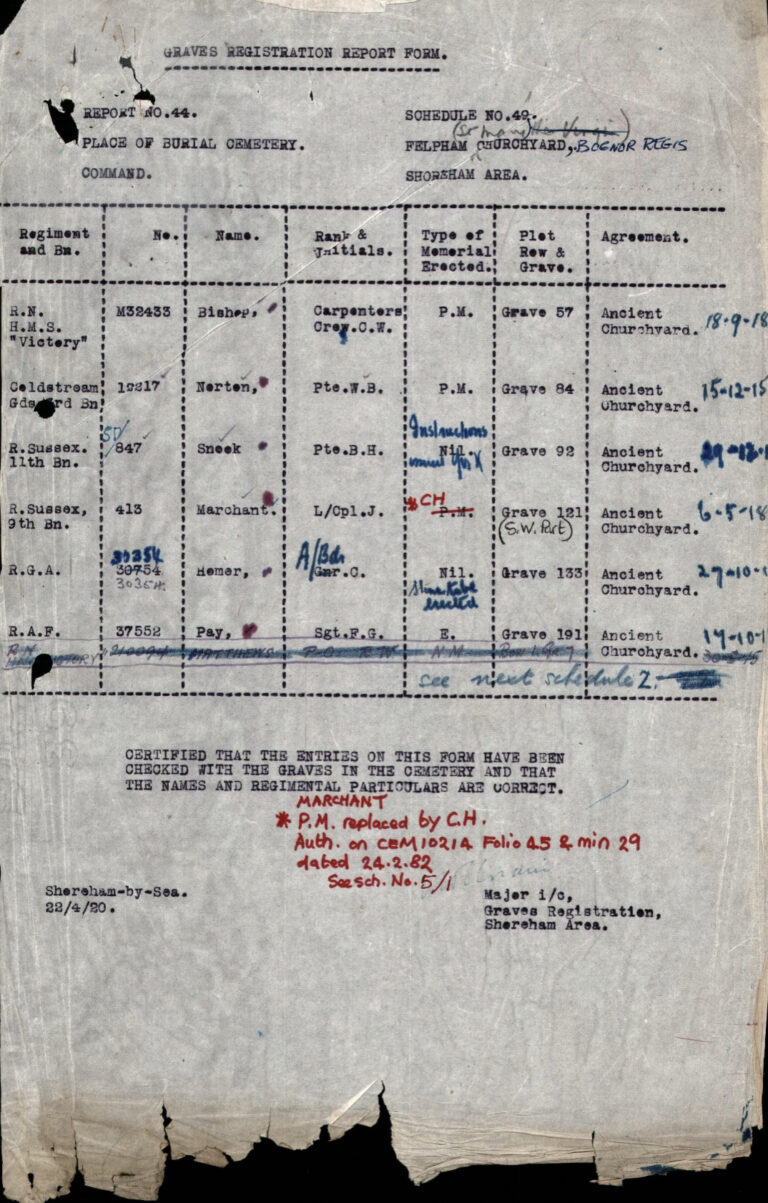 GRAVES REGISTRATION REPORT FORM.
REPORT NO.44. SCHEDULE NO.49.
(St Mary the Virgin)
PLACE OF BURIAL CEMETERY. FELPHAM CHURCHYARD, BOGNOR REGIS
COMMAND. SHOREHAM AREA.
Regiment No. Name. Rank & Type of Plot Agreement.
and Bn. Initials. Memorial Row &
Erected. Grave.
R.N. M32433 Bishop, Carpenters P.M. Grave 57 Ancient 18-9-18
H.M.S. Crew.C.W. Churchyard.
"Victory"
Coldstream 19217 Norton, Pte.W.B. P.M. Grave 84 Ancient 15-12-15
Gds 3rd Bn Churchyard.
SD/ Instructions
R.Sussex. 847 Snook Pte.B.H. Nil. Grave 92 Ancient
11th Bn. Churchyard.
CH
R.Sussex, 413 Marchant. L/Cpl.J. * P.M. Grave 121 Ancient 6-5-18
9th Bn. (S.W. Part) Churchyard.
30354 A/Bdr
R.G.A. 30754 Hemer, Gnr.C. Nil. Grave 133 Ancient 27-10-1
30354 erected Churchyard.
R.A.F. 37552 Pay, Sgt.F.G. E. Grave 191 Ancient 17-10-1
R.N. 210094 MATTHEWS P.O. R.W N.M. Churchyard.
see next schedule 2.
CERTIFIED THAT THE ENTRIES ON THIS FORM HAVE BEEN
CHECKED WITH THE GRAVES IN THE CEMETERY AND THAT
THE NAMES AND REGIMENTAL PARTICULARS ARE CORRECT.
MARCHANT
* P.M. replaced by C.H.
Auth. on CEM 10214 Folio 45 & min 29
dated 24.2.82
See sch. No. 5/1
Shoreham-by-Sea. Major i/c,
22/4/20. Graves Registration,
Shoreham Area.